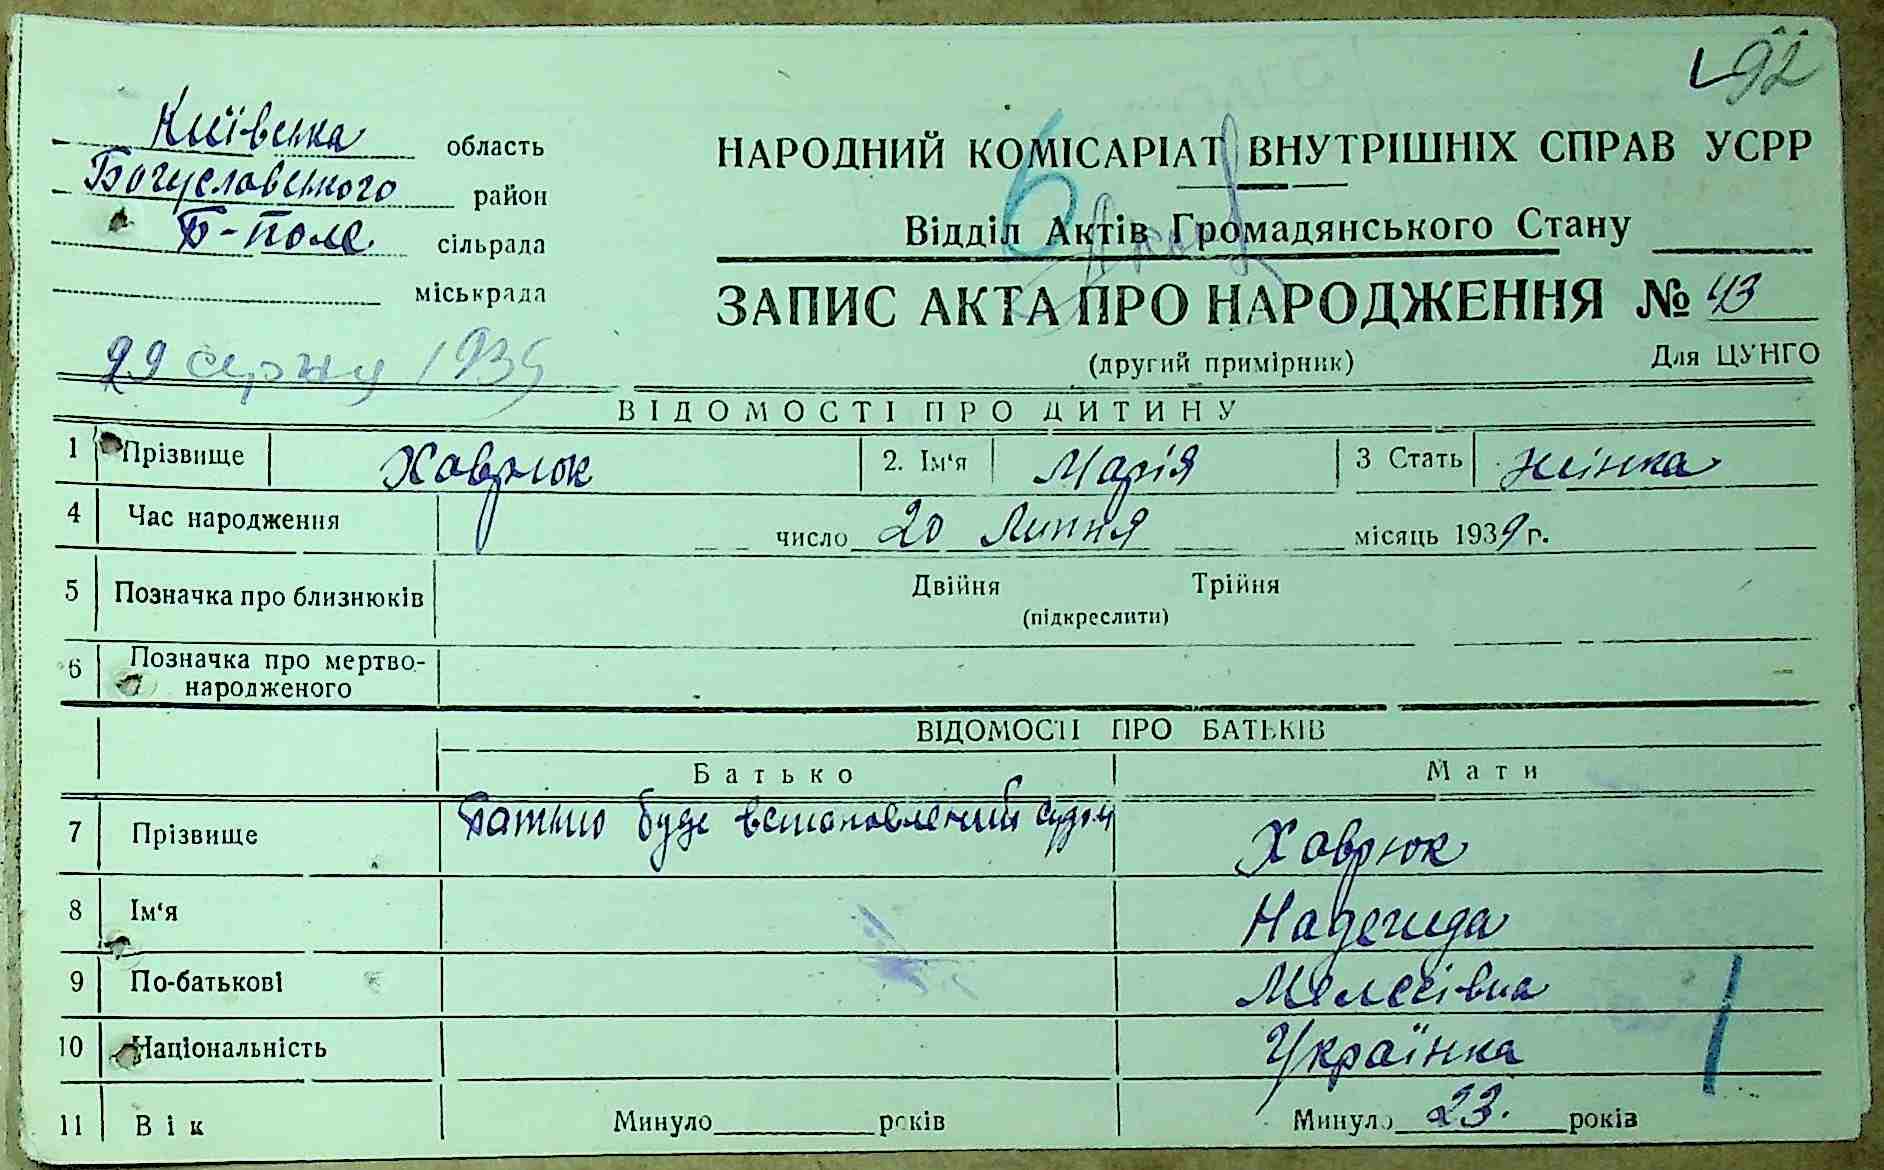 92
Київська область
Богуславського район
Б-Поле сільрада
міськрада
НАРОДНИЙ КОМІСАРІАТ ВНУТРІШНІХ СПРАВ УСРР
Б
Відділ Актів Громадянського Стану
ЗАПИС АКТА ПРО НАРОДЖЕННЯ № 43
(другий примірник) Для ЦУНГО
29 серпня 1939
ВІДОМОСТІ ПРО ДИТИНУ
1 Прізвище Хаврюк 2. Ім'я Марія 3 Стать жінка
4 Час народження число 20 Липня місяць 1939 г.
5 Позначка про близнюків Двійня Трійня
(підкреслити)
6 Позначка про мертво-
народженого
ВІДОМОСТІ ПРО БАТЬКІВ
Батько Мати
7 Прізвище Батько буде встановлений судом Хаврюк
8 Ім'я Надежда
9 По-батькові
10 Національність Українка
11 Вік Минуло років Минуло 23. років